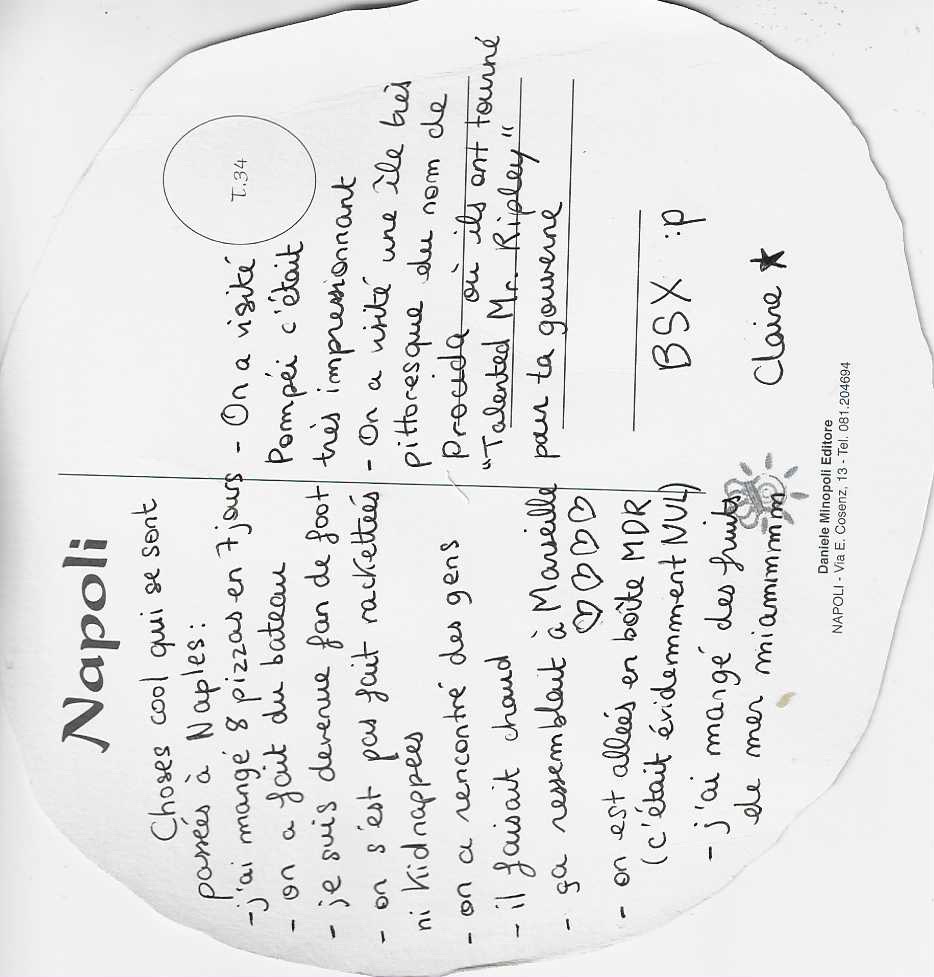 Napoli
Choses cool qui se sont
passées à Naples:
- j'ai mangé 8 pizzas en 7 jours
- on a fait du bateau
- je suis devenue fan de foot
- on s'est pas fait rackettées
ni kidnappées
- on a rencontré des gens
- il faisait chaud
- ça ressemblait à Marseille
♡♡♡♡
- on est allées en boîte MDR
(c'était évidemment NUL)
- j'ai mangé des fruits
de mer miammmm
T.34
- On a visité
Pompéi c'était
très impressionnant
- On a visité une île très
pittoresque du nom de
Procida où ils ont tourné
"Talented Mr. Ripley"
pour ta gouverne
BSX :p
Claire ★
Daniele Minopoli Editore
NAPOLI - Via E. Cosenz, 13 - Tel. 081.204694